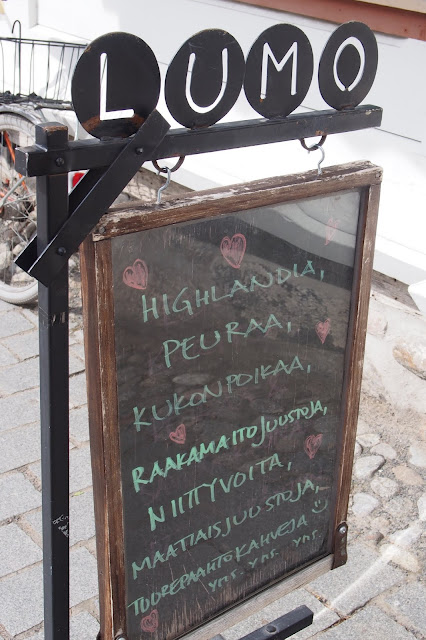 LUMO
HIGHLANDIA,
PEURAA,
KUKONPOIKAA,
RAAKAMAITOJUUSTOJA,
NIITTYVOITA,
MAATIAISJUUSTOJA,
TUOREPAAHTOKAHVEJA :)
YMS. YMS. YMS.